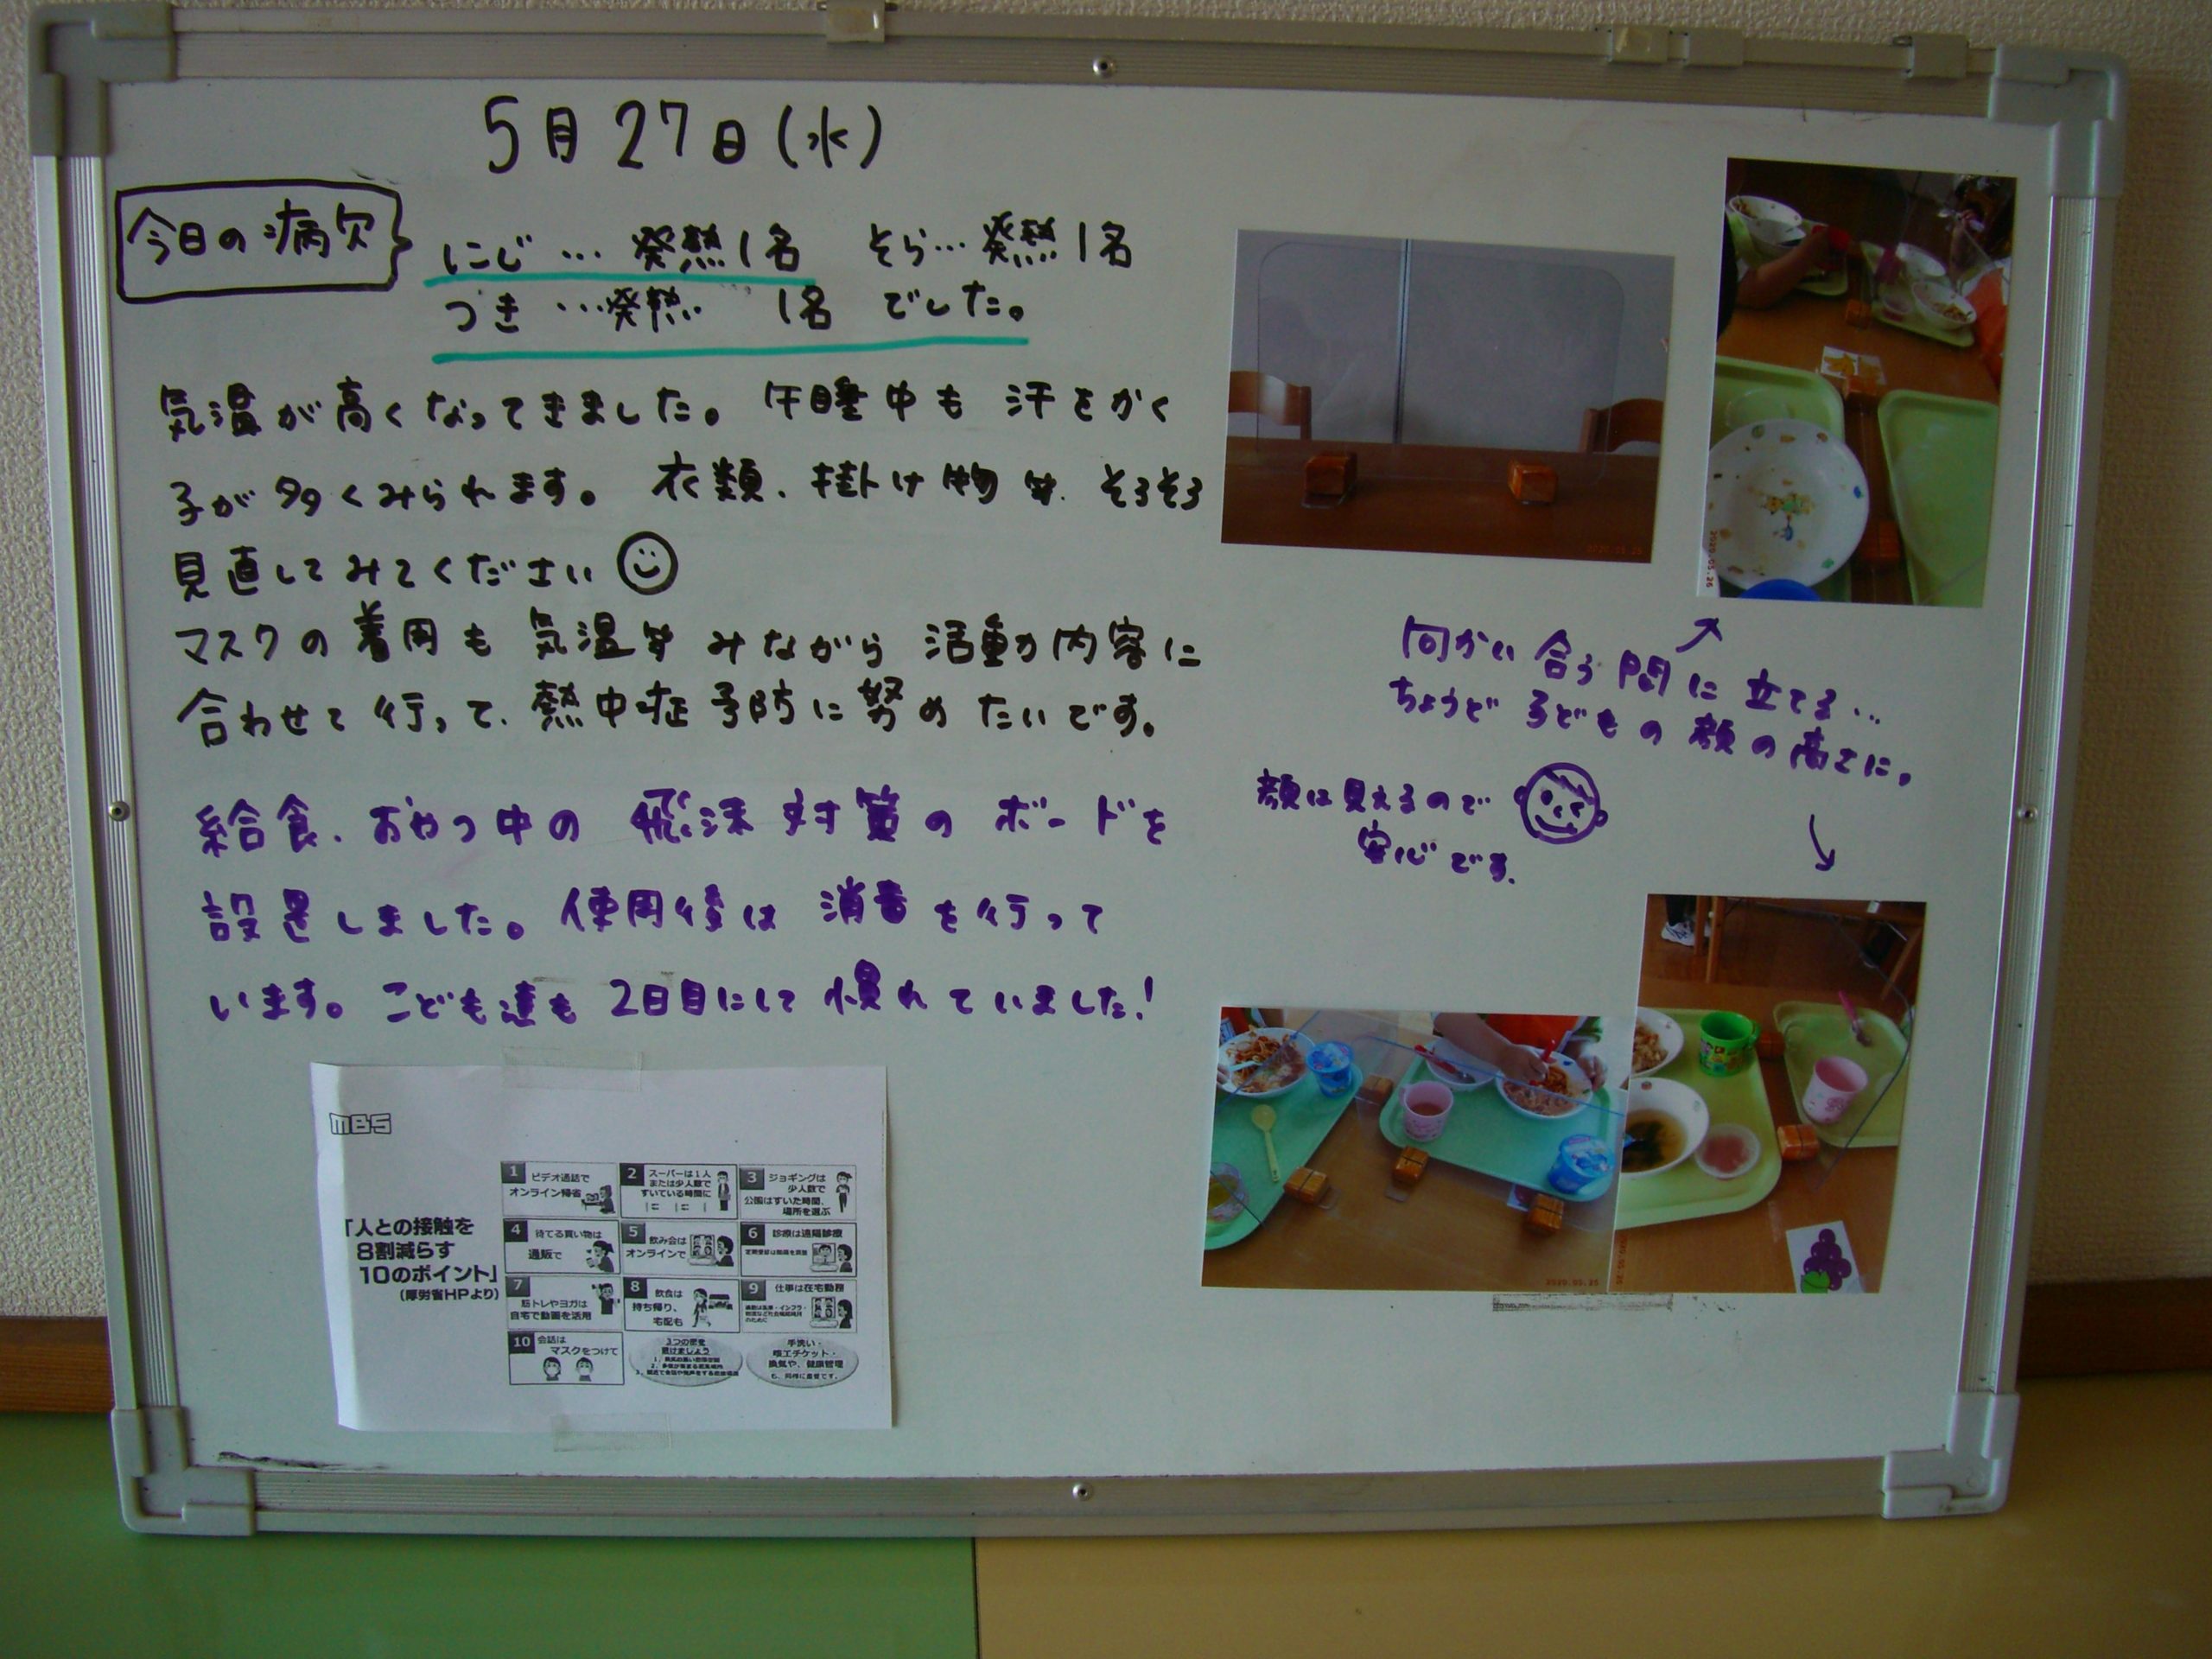 5月27日(水)
今日の病欠
にじ … 発熱1名 そら…発熱1名
つき …発熱 1名 でした。
気温が高くなってきました。午睡中も汗をかく
子が多くみられます。衣類、掛け物等、そろそろ
見直してみてください
マスクの着用も気温等みながら活動内容に
合わせて行って、熱中症予防に努めたいです。
給食、おやつ中の飛沫対策のボードを
設置しました。使用後は消毒を行って
います。こども達も2日目にして慣れていました!
向かい合う間に立てる…
ちょうど子どもの顔の高さに。
顔は見えるので
安心です。
MBS
「人との接触を
8割減らす
10のポイント」
(厚労省HPより)
1 ビデオ通話で
オンライン帰省
2 スーパーは1人
または少人数で
すいている時間に
3 ジョギングは
少人数で
公園はすいた時間、
場所を選ぶ
4 待てる買い物は
通販で
5 飲み会は
オンラインで
6 診療は遠隔診療
定期受診は間隔を調整
7 筋トレやヨガは
自宅で動画を活用
8 飲食は
持ち帰り、
宅配も
9 仕事は在宅勤務
10 会話は
マスクをつけて
3つの密を
避けましょう
手洗い・
咳エチケット・
換気や、健康管理
も、同様に重要です。
2020.05.26
2020.05.26